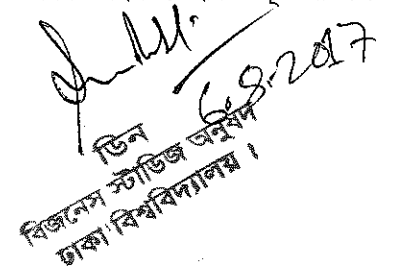 6.8.2017
ডিন
বিজনেস স্টাডিজ অনুষদ
ঢাকা বিশ্ববিদ্যালয় ।